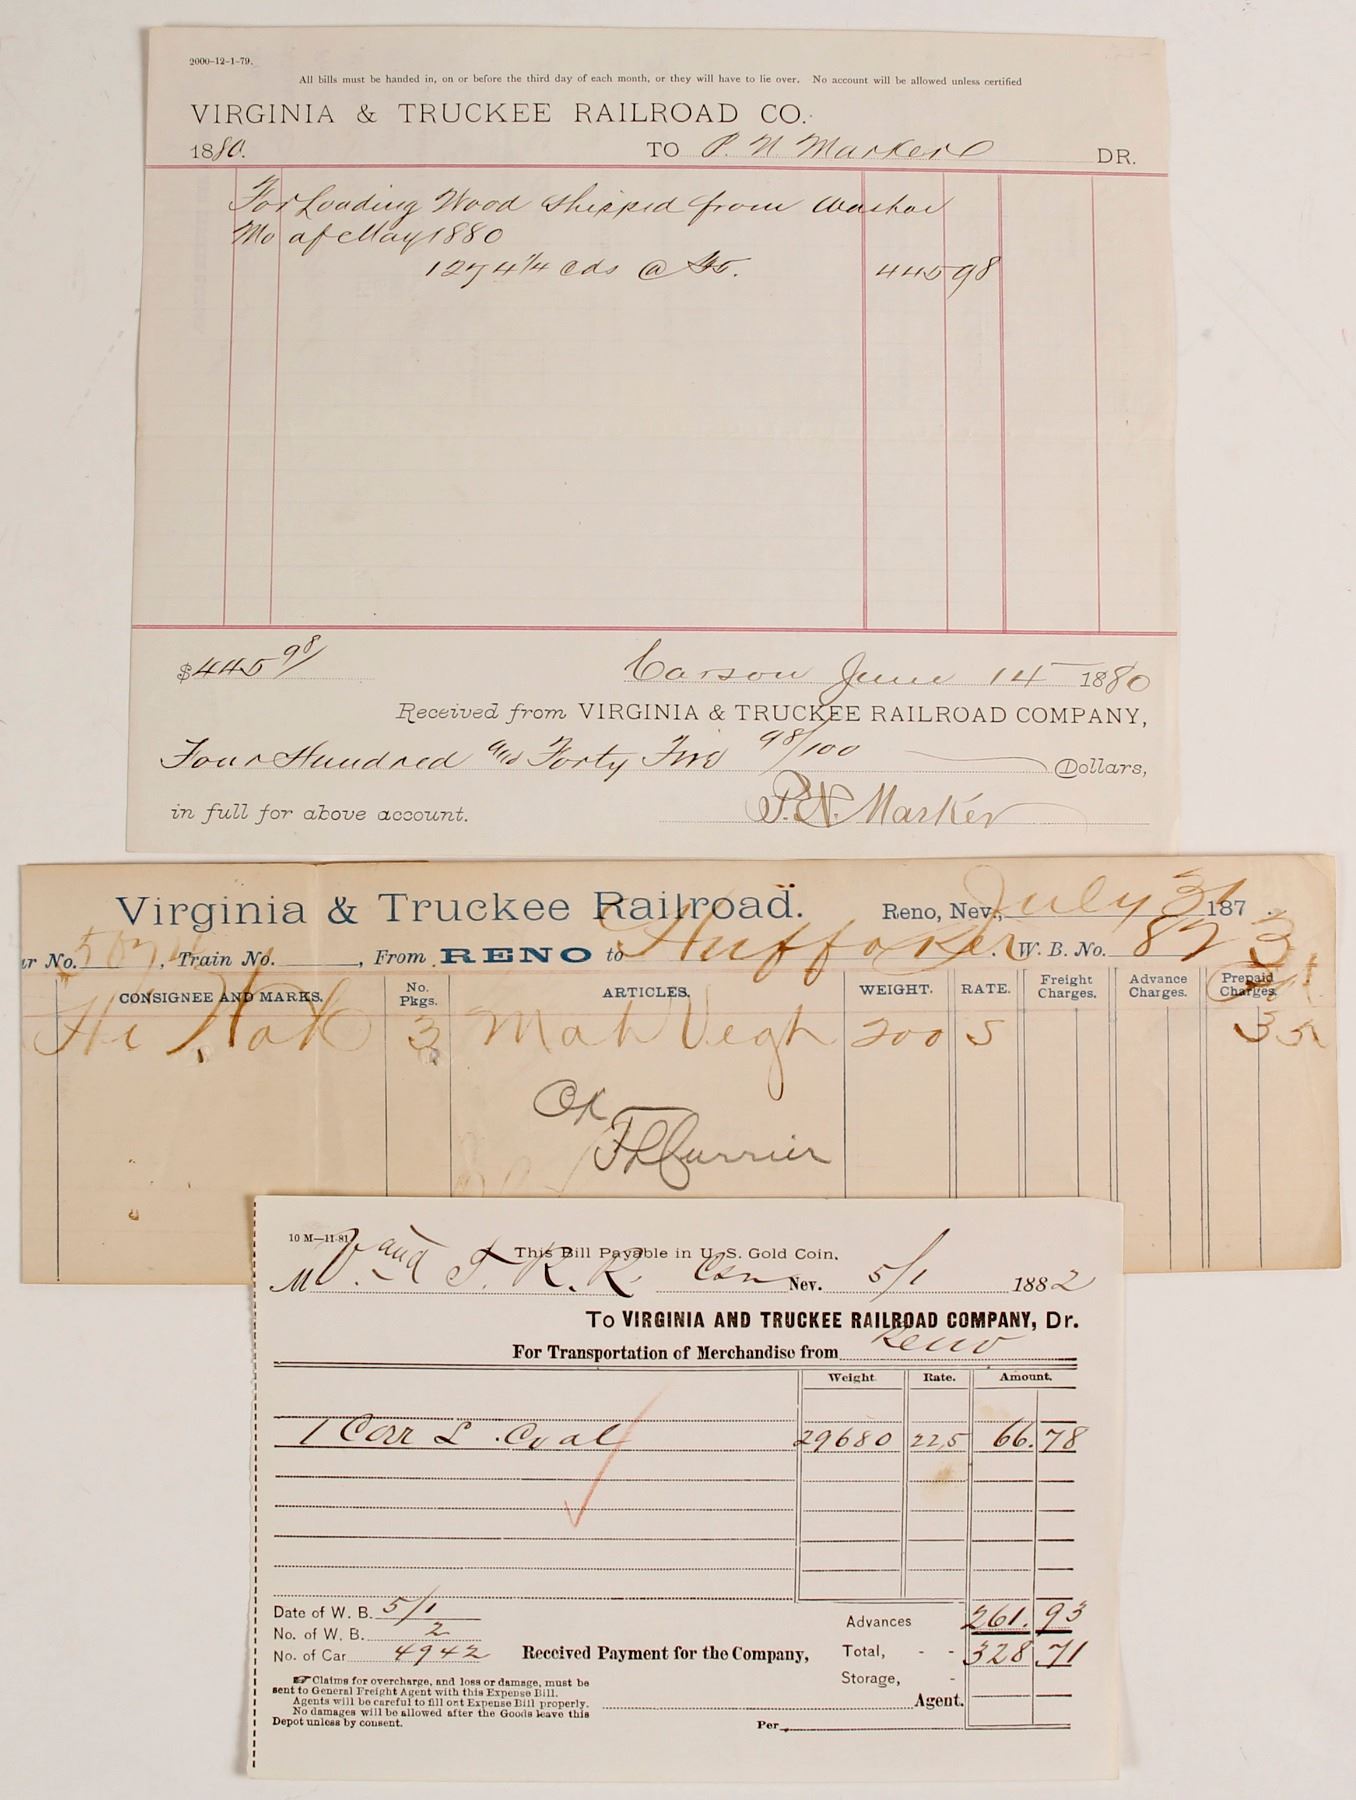 2000-12-1-79.
All bills must be handed in, on or before the third day of each month, or they will have to lie over. No account will be allowed unless certified
VIRGINIA & TRUCKEE RAILROAD CO.
1880. TO P. N Marker DR.
For Loading Wood Shipped from Washoe
Mo of May 1880
1274 1/4 Cds @ 445 98
$445 98/
Carson June 14 1880
Received from VIRGINIA & TRUCKEE RAILROAD COMPANY,
Four Hundred and Forty Five 98/100 Dollars,
in full for above account. P. N. Marker
Virginia & Truckee Railroad. Reno, Nev., July 31 1873.
r No. , Train No. , From RENO to Huffaker. W. B. No. 82
CONSIGNEE AND MARKS. No. Pkgs. ARTICLES. WEIGHT. RATE. Freight Charges. Advance Charges. Prepaid Charges.
3 200 5 35
OK
Currier
10 M—11-81
This Bill Payable in U. S. Gold Coin.
M V. and T. R. R. Csn Nev. 5/1 1882
To VIRGINIA AND TRUCKEE RAILROAD COMPANY, Dr.
For Transportation of Merchandise from Reno
Weight. Rate. Amount.
1 Carr L. Coal 29680 225 66.78
Date of W. B. 5/1
No. of W. B. 2
No. of Car 4942
Received Payment for the Company,
Advances 261.93
Total, - - 328 71
Storage, -
☞ Claims for overcharge, and loss or damage, must be
sent to General Freight Agent with this Expense Bill.
Agents will be careful to fill out Expense Bill properly.
No damages will be allowed after the Goods leave this
Depot unless by consent.
Agent.
Per